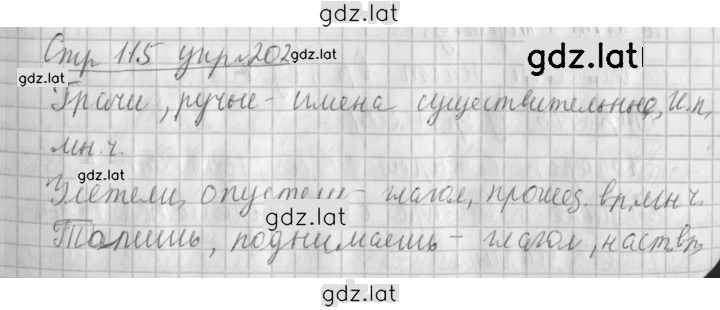 gdz.lat
Стр 115 упр 202
gdz.lat
gdz.lat
gdz.lat
Грачи, ручьи - имена существительные, И.п,
мн.ч.
gdz.lat
Улетели, опустели - глагол, прошед. вр, мн ч.
gdz.lat
Топишь, поднимаешь - глагол, наст.вр,
gdz.lat